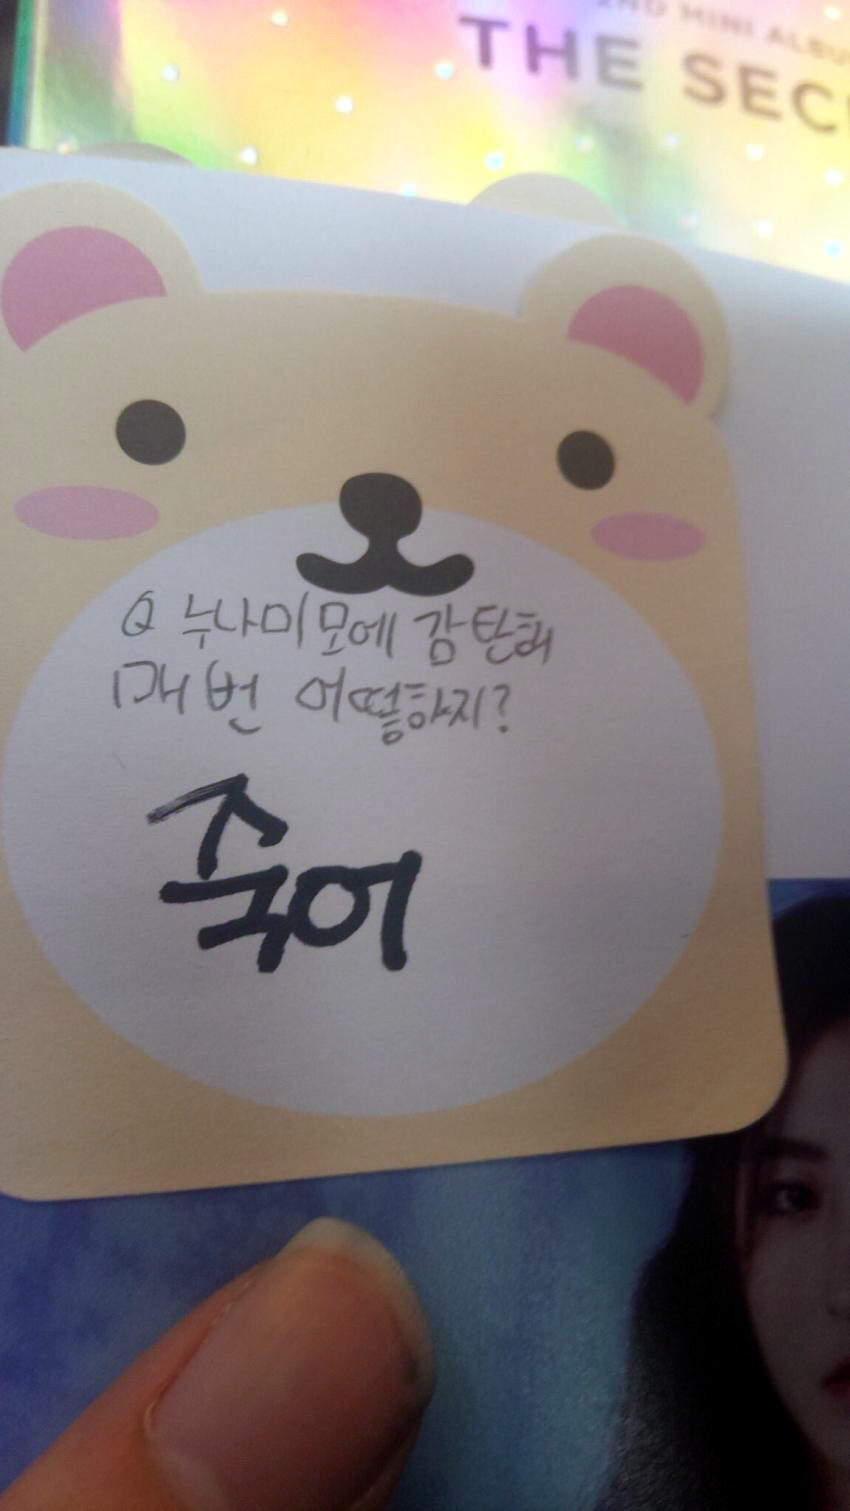 2ND MINI ALBU
THE SEC
Q 누나미모에 감탄해
매번 어떻하지?
죽어